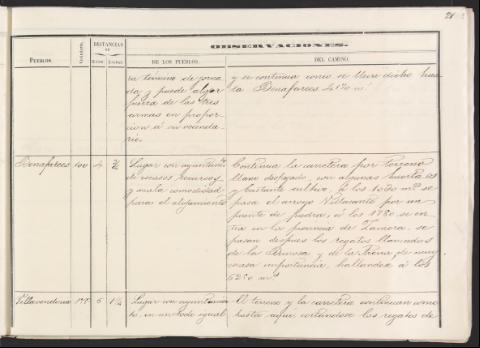 21
OBSERVACIONES.
DISTANCIAS
PUEBLOS.
DE LOS PUEBLOS.
DEL CAMINO.
ra término de jorna-
da y puede alojar
fuerza de las tres
armas en propor-
cion á su vecinda-
rio.
y se continua como se lleva dicho has-
ta Benafarces
Benafarces 100 4 3/4
Lugar con ayuntamto
de escasos recursos
y mala comodidad
para el alojamiento
Continua la carretera por terreno
llano despejado, con algunas huertas
y bastante cultivo. á los 1500 ms se
pasa el arroyo Villacante por un
puente de piedra, á los 1780 se en-
tra en la provincia de Zamora, se
pasan despues los regatos llamados
de la Hermosa y de la Reina, de muy
escasa importancia, hallandose á los
5250 ms
Villavendimio
Lugar con ayuntamien-
to, en un todo igual
El terreno y la carretera continuan como
hasta aqui cortandose los regatos de